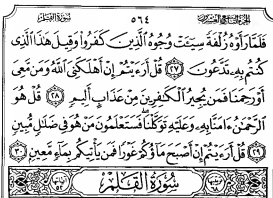 سورة الملك ٥٦٤ الجزء التاسع والعشرون
فَلَمَّا رَأَوْهُ زُلْفَةً سِيئَتْ وُجُوهُ الَّذِينَ كَفَرُوا وَقِيلَ هَٰذَا الَّذِي
كُنتُم بِهِ تَدَّعُونَ ٢٧ قُلْ أَرَءَيْتُمْ إِنْ أَهْلَكَنِيَ اللَّهُ وَمَن مَّعِيَ
أَوْ رَحِمَنَا فَمَن يُجِيرُ الْكَٰفِرِينَ مِنْ عَذَابٍ أَلِيمٍ ٢٨ قُلْ هُوَ
الرَّحْمَٰنُ ءَامَنَّا بِهِ وَعَلَيْهِ تَوَكَّلْنَا فَسَتَعْلَمُونَ مَنْ هُوَ فِي ضَلَٰلٍ مُّبِينٍ
٢٩ قُلْ أَرَءَيْتُمْ إِنْ أَصْبَحَ مَاؤُكُمْ غَوْرًا فَمَن يَأْتِيكُم بِمَاءٍ مَّعِينٍ ٣٠
سُورَةُ الْقَلَمِ